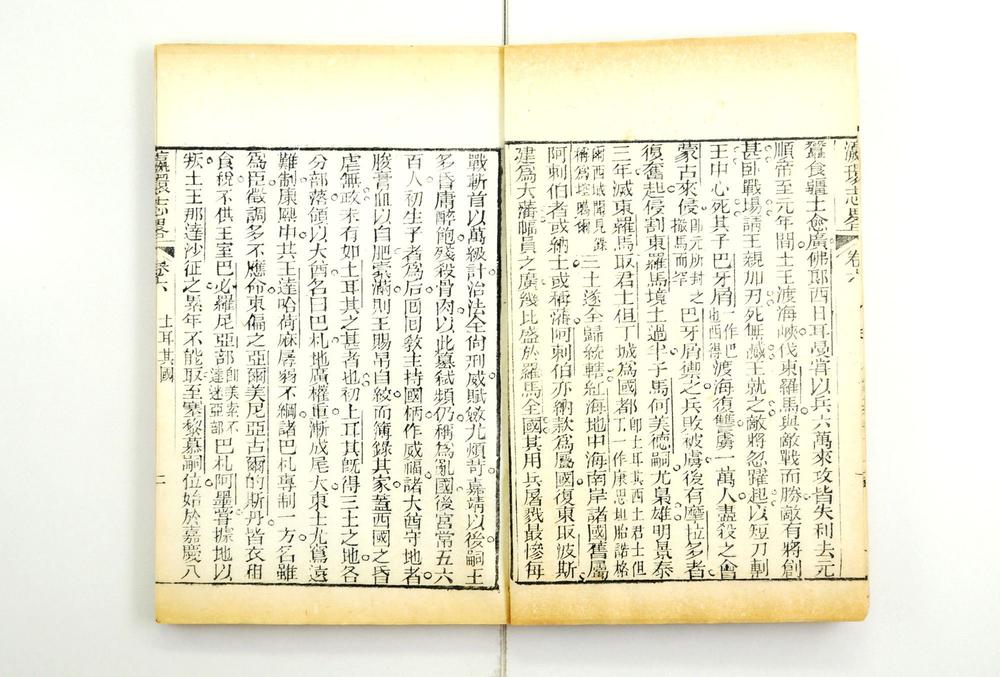 瀛環志畧 卷六
蠶食疆土愈廣佛郎西日耳曼嘗以兵六萬來攻皆失利去元
順帝至元年間土王渡海峽伐東羅馬與敵戰而勝敵有將創
甚臥戰場請王親加刃死無憾王就之敵將忽躍起以短刀剚
王中心死其子巴牙屑一作巴也西得渡海復讐虜一萬人盡殺之會
蒙古來侵卽元所封之撒馬而罕巴牙屑禦之兵敗被虜後有摩拉多者
復奮起侵割東羅馬境土過半子馬何美德嗣尤梟雄明景泰
三年滅東羅馬取君士但丁城爲國都卽土耳其西土君士但丁一作康思坦胎諾格爾西域聞見錄稱爲務嚕爾
三土遂全歸統轄紅海地中海南岸諸國舊屬
阿剌伯者或納土或稱藩阿剌伯亦納款爲屬國復東取波斯
建爲大藩幅員之廣幾比盛於羅馬全國其用兵屠戮最慘每
戰斬首以萬級計治法全尙刑威賦斂尤煩苛嘉靖以後嗣王
多昏庸酗飽殘殺骨肉以此墓弑頻仍稱爲亂國後宮常五六
百人初生子者爲后回回敎主持國柄作威福諸大酋守地者
朘膏血以自肥橐滿則王賜帛自絞而簿錄其家蓋西國之昏
虐無政未有如土耳其之甚者也初土耳其旣得三土之地各
分部落領以大酋名曰巴札地廣權重漸成尾大東土尤寫遠
難制康熙中共王達哈荷麻孱弱不綱諸巴札專制一方名雖
爲臣徵調多不應命東偏之亞爾美尼亞古爾的斯丹皆衣租
食稅不供王室巴必羅尼亞部卽美索不達迷亞部巴札阿墨聾據地以
叛土王那達沙征之累年不能取至塞黎慕嗣位始於嘉慶八
瀛環志畧 卷六 土耳其國 二